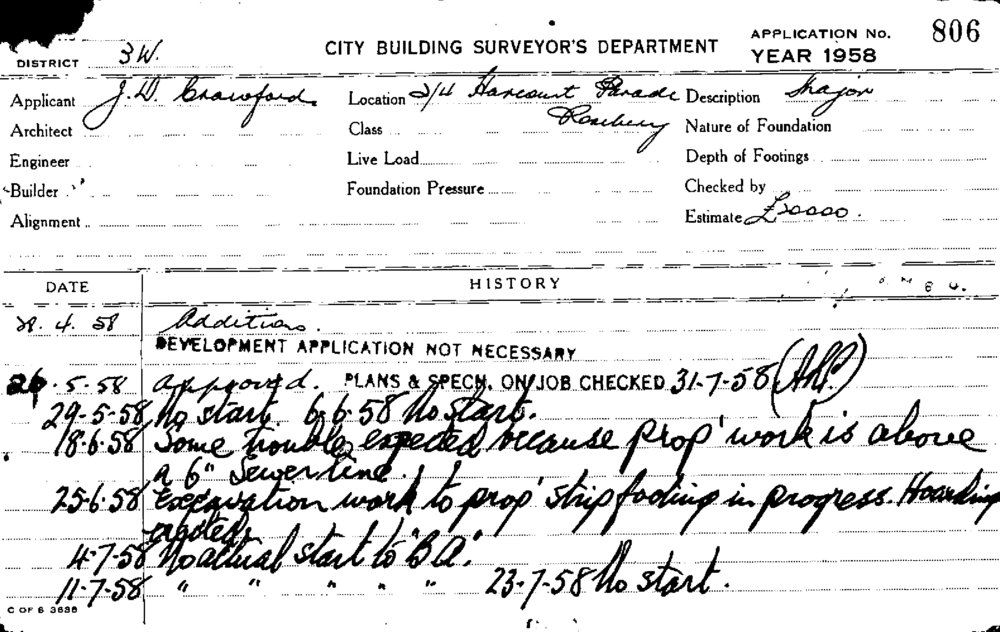 DISTRICT 3W. CITY BUILDING SURVEYOR'S DEPARTMENT APPLICATION No. 806
YEAR 1958
Applicant J. D. Crawford. Location 2/4 Harcourt Parade Description Major
Rosebery
Architect Class Nature of Foundation
Engineer Live Load Depth of Footings
Builder Foundation Pressure Checked by
Alignment Estimate £20000.
DATE HISTORY
4. 58 Additions.
DEVELOPMENT APPLICATION NOT NECESSARY
26.5.58 approved. PLANS & SPECN. ON JOB CHECKED 31-7-58
29-5-58 No start. 6-6-58 No start.
18-6-58 Some trouble expected because prop' work is above
a 6" sewer line.
25-6-58 Excavation work to prop' strip footing in progress. Hoarding
erected.
4-7-58 No actual start to "B.A."
11-7-58 " " " " " 23-7-58 No start.
C OF S 3686